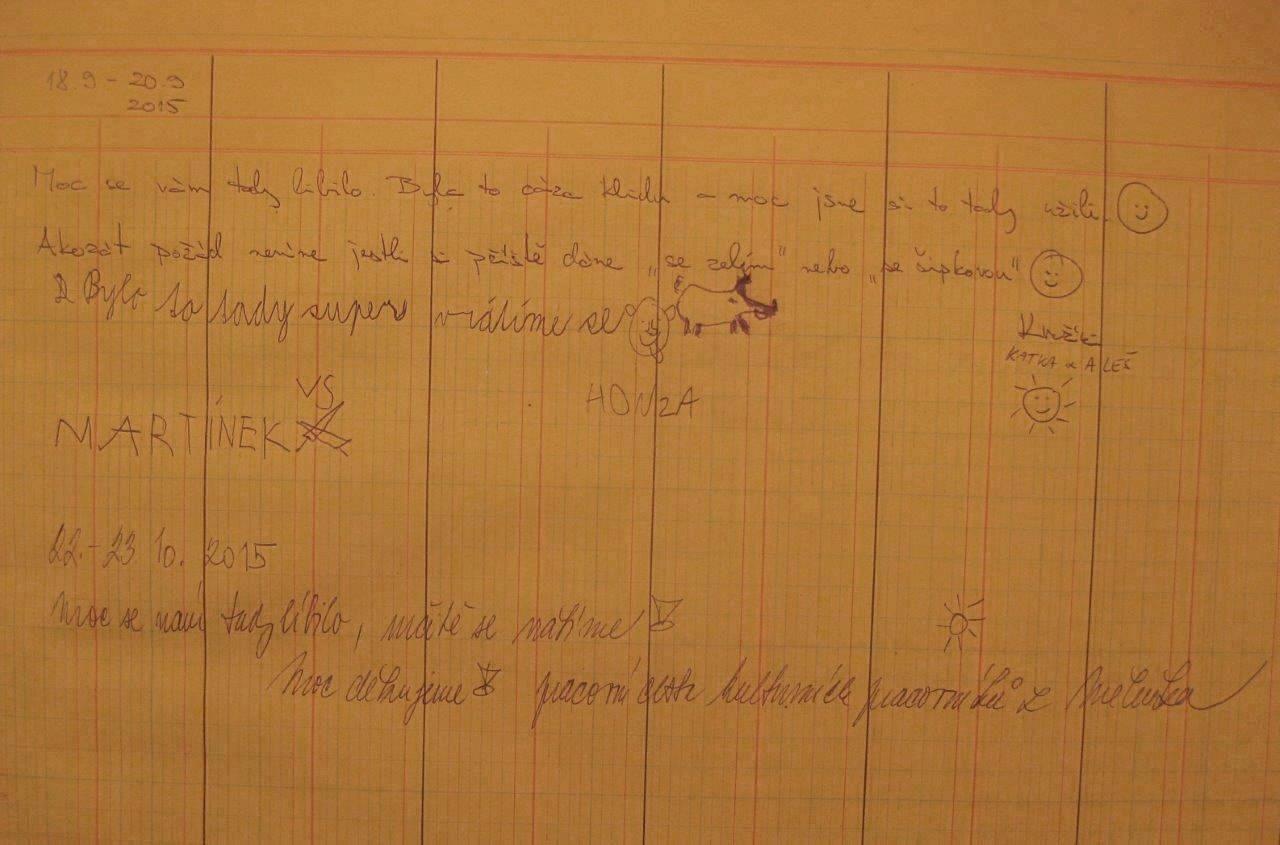 18.9 - 20.9
2015
Moc se vám tady líbilo. Byla to oáza klidu a moc jsme si to tady užili.
Akorát pořád nevíme jestli si příště dáme „se zelím" nebo „se šípkovou"
Bylo to tady super vrátíme se
KATKA a ALEŠ
VS
HONZA
MARTÍNEK
22.-23 10. 2015
Moc se nám tady líbilo, určitě se vrátíme
Moc děkujeme pracovní cesta kulturních pracovníků z